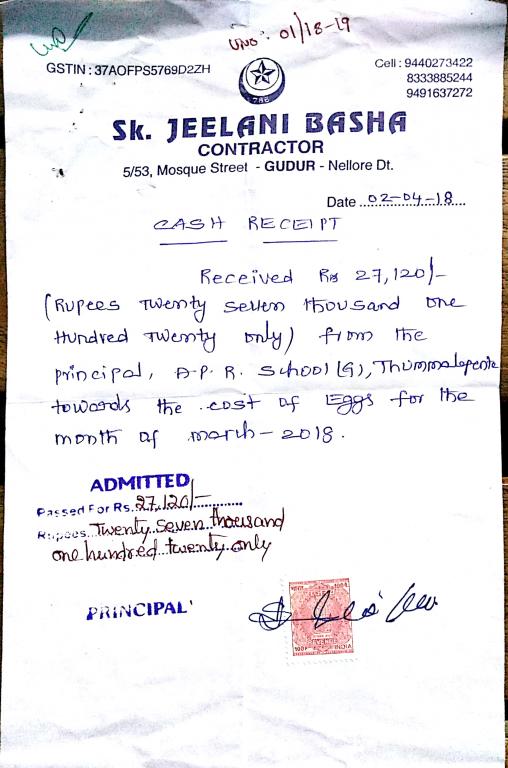 VNO: 01/18-19
GSTIN : 37AOFPS5769D2ZH
Cell : 9440273422
8333885244
9491637272
786
Sk. JEELANI BASHA
CONTRACTOR
5/53, Mosque Street - GUDUR - Nellore Dt.
Date 02-04-18
CASH RECEIPT
Received Rs 27,120/-
(Rupees Twenty seven thousand one
Hundred Twenty only) from the
principal, A.P.R. School (G), Thummalapenta
towards the cost of Eggs for the
month of march-2018.
ADMITTED
Passed For Rs. 27,120/-
Rupees Twenty seven thousand
one hundred twenty only
PRINCIPAL
100P INDIA